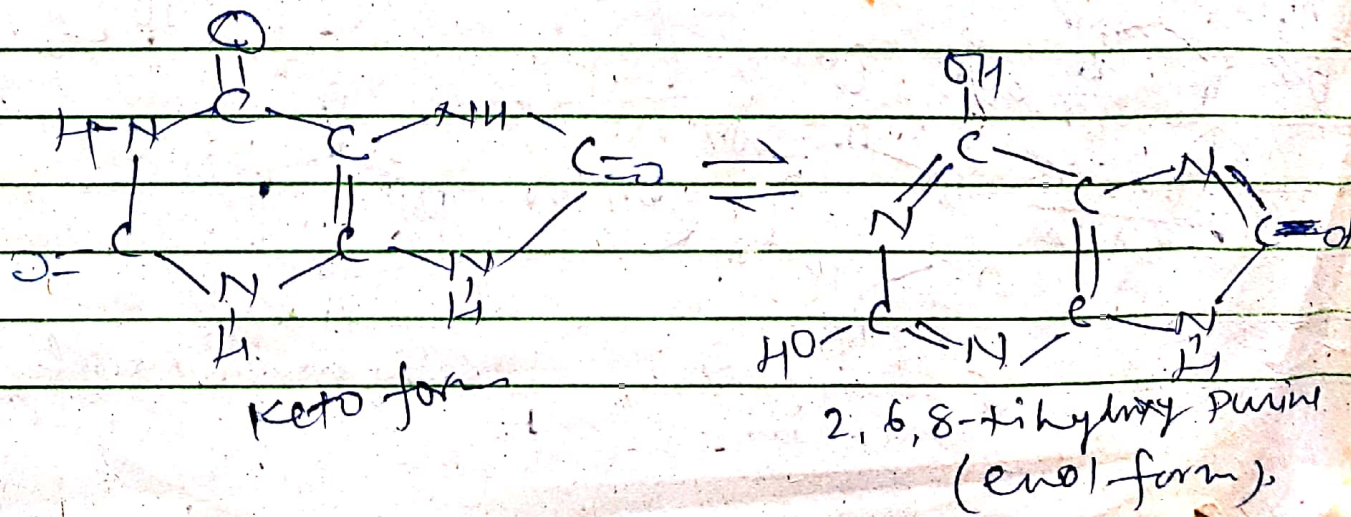 O
H-N C C NH C=O
O= C N H C N H
Keto form
OH
C N C N C
HO C N C N H
2, 6, 8-trihydroxy purine
(enol form).